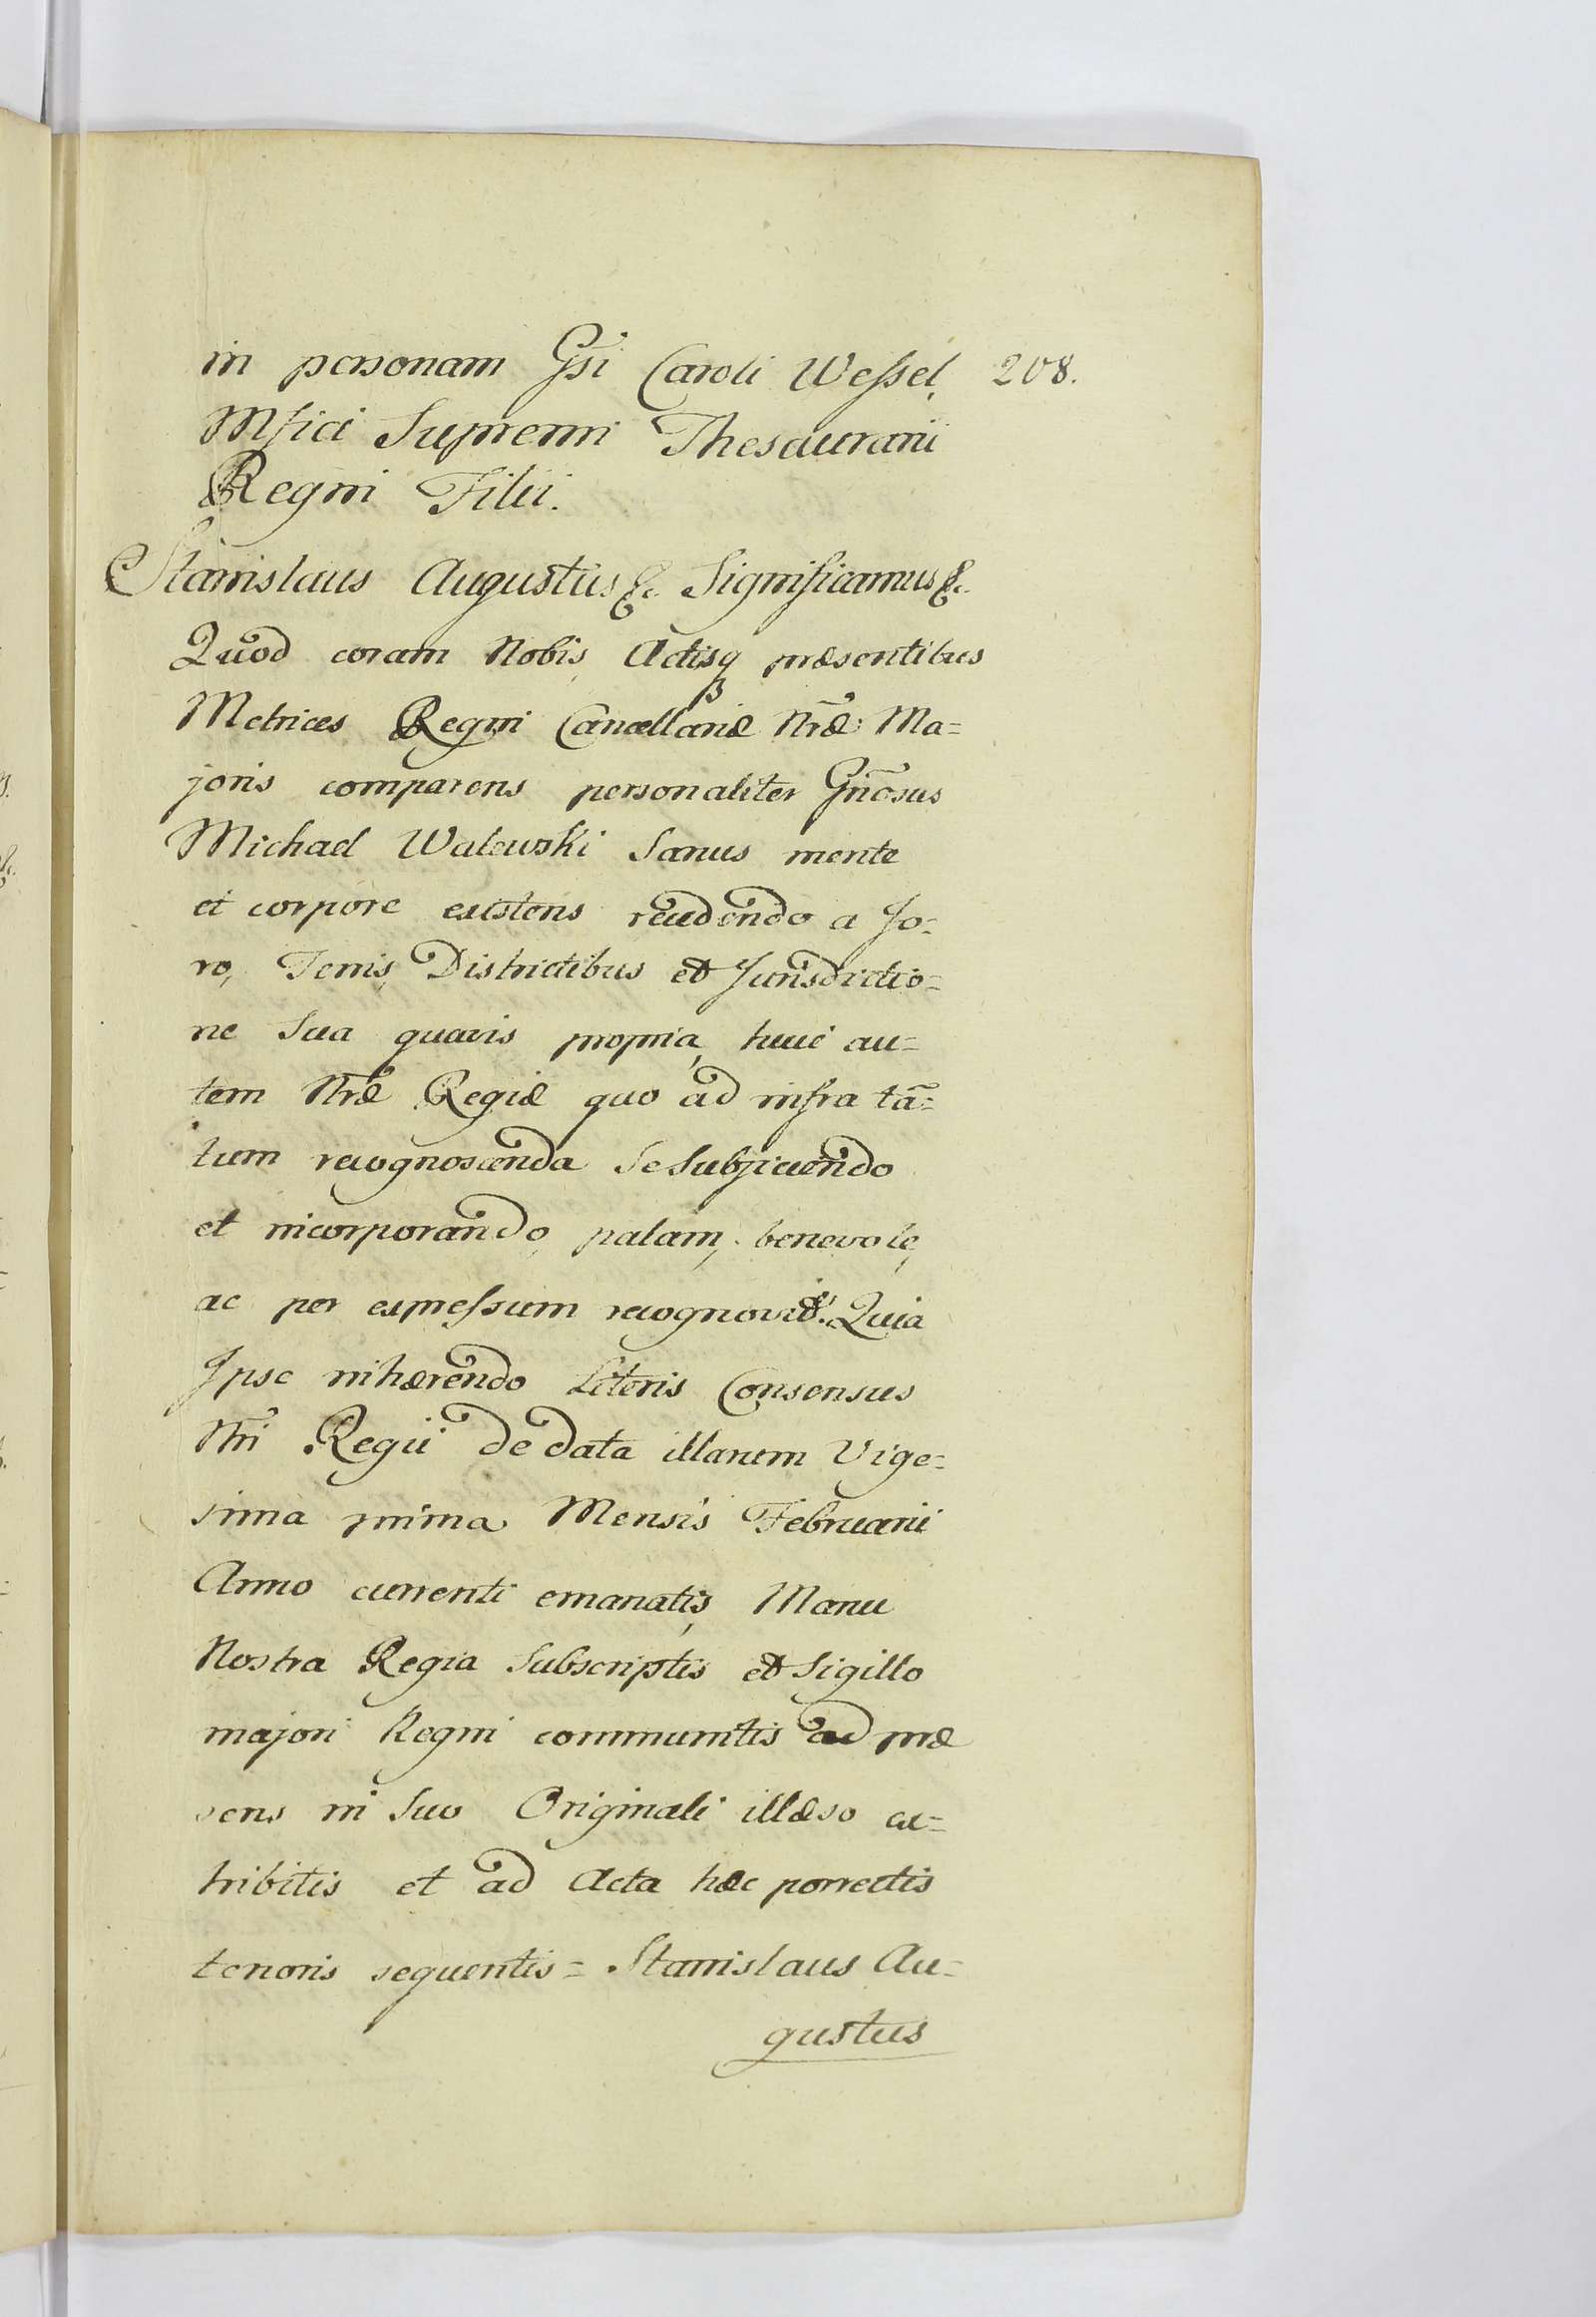 in personam Gsi Caroli Wessel, 208.
Mfici Supremi Thesaurarii
Regni Filii.
Stanislaus Augustus &c. Significamus &c.
Quod coram Nobis, Actisq præsentibus
Metrices Regni Cancellariæ Nræ Ma=
joris comparens personaliter Gnosus
Michael Walewski Sanus mente
et corpore existens recedendo a Fo=
ro, Terris, Districtibus et Jurisdictio=
ne Sua quavis propria, huic au=
tem Nræ Regiæ quo ad infra ta=
tum recognoscenda Se Subjiciendo
et incorporando, palam, benevole,
ac per expressum recognovit. Quia
Ipse inhærendo Literis Consensus
Nri Regii de data illarum Vige=
sima prima Mensis Februarii
Anno currenti emanatis, Manu
Nostra Regia Subscriptis et Sigillo
majori Regni communitis ad præ
sens in Suo Originali illæso ex=
hibitis et ad Acta hæc porrectis
tenoris sequentis = Stanislaus Au=
gustus